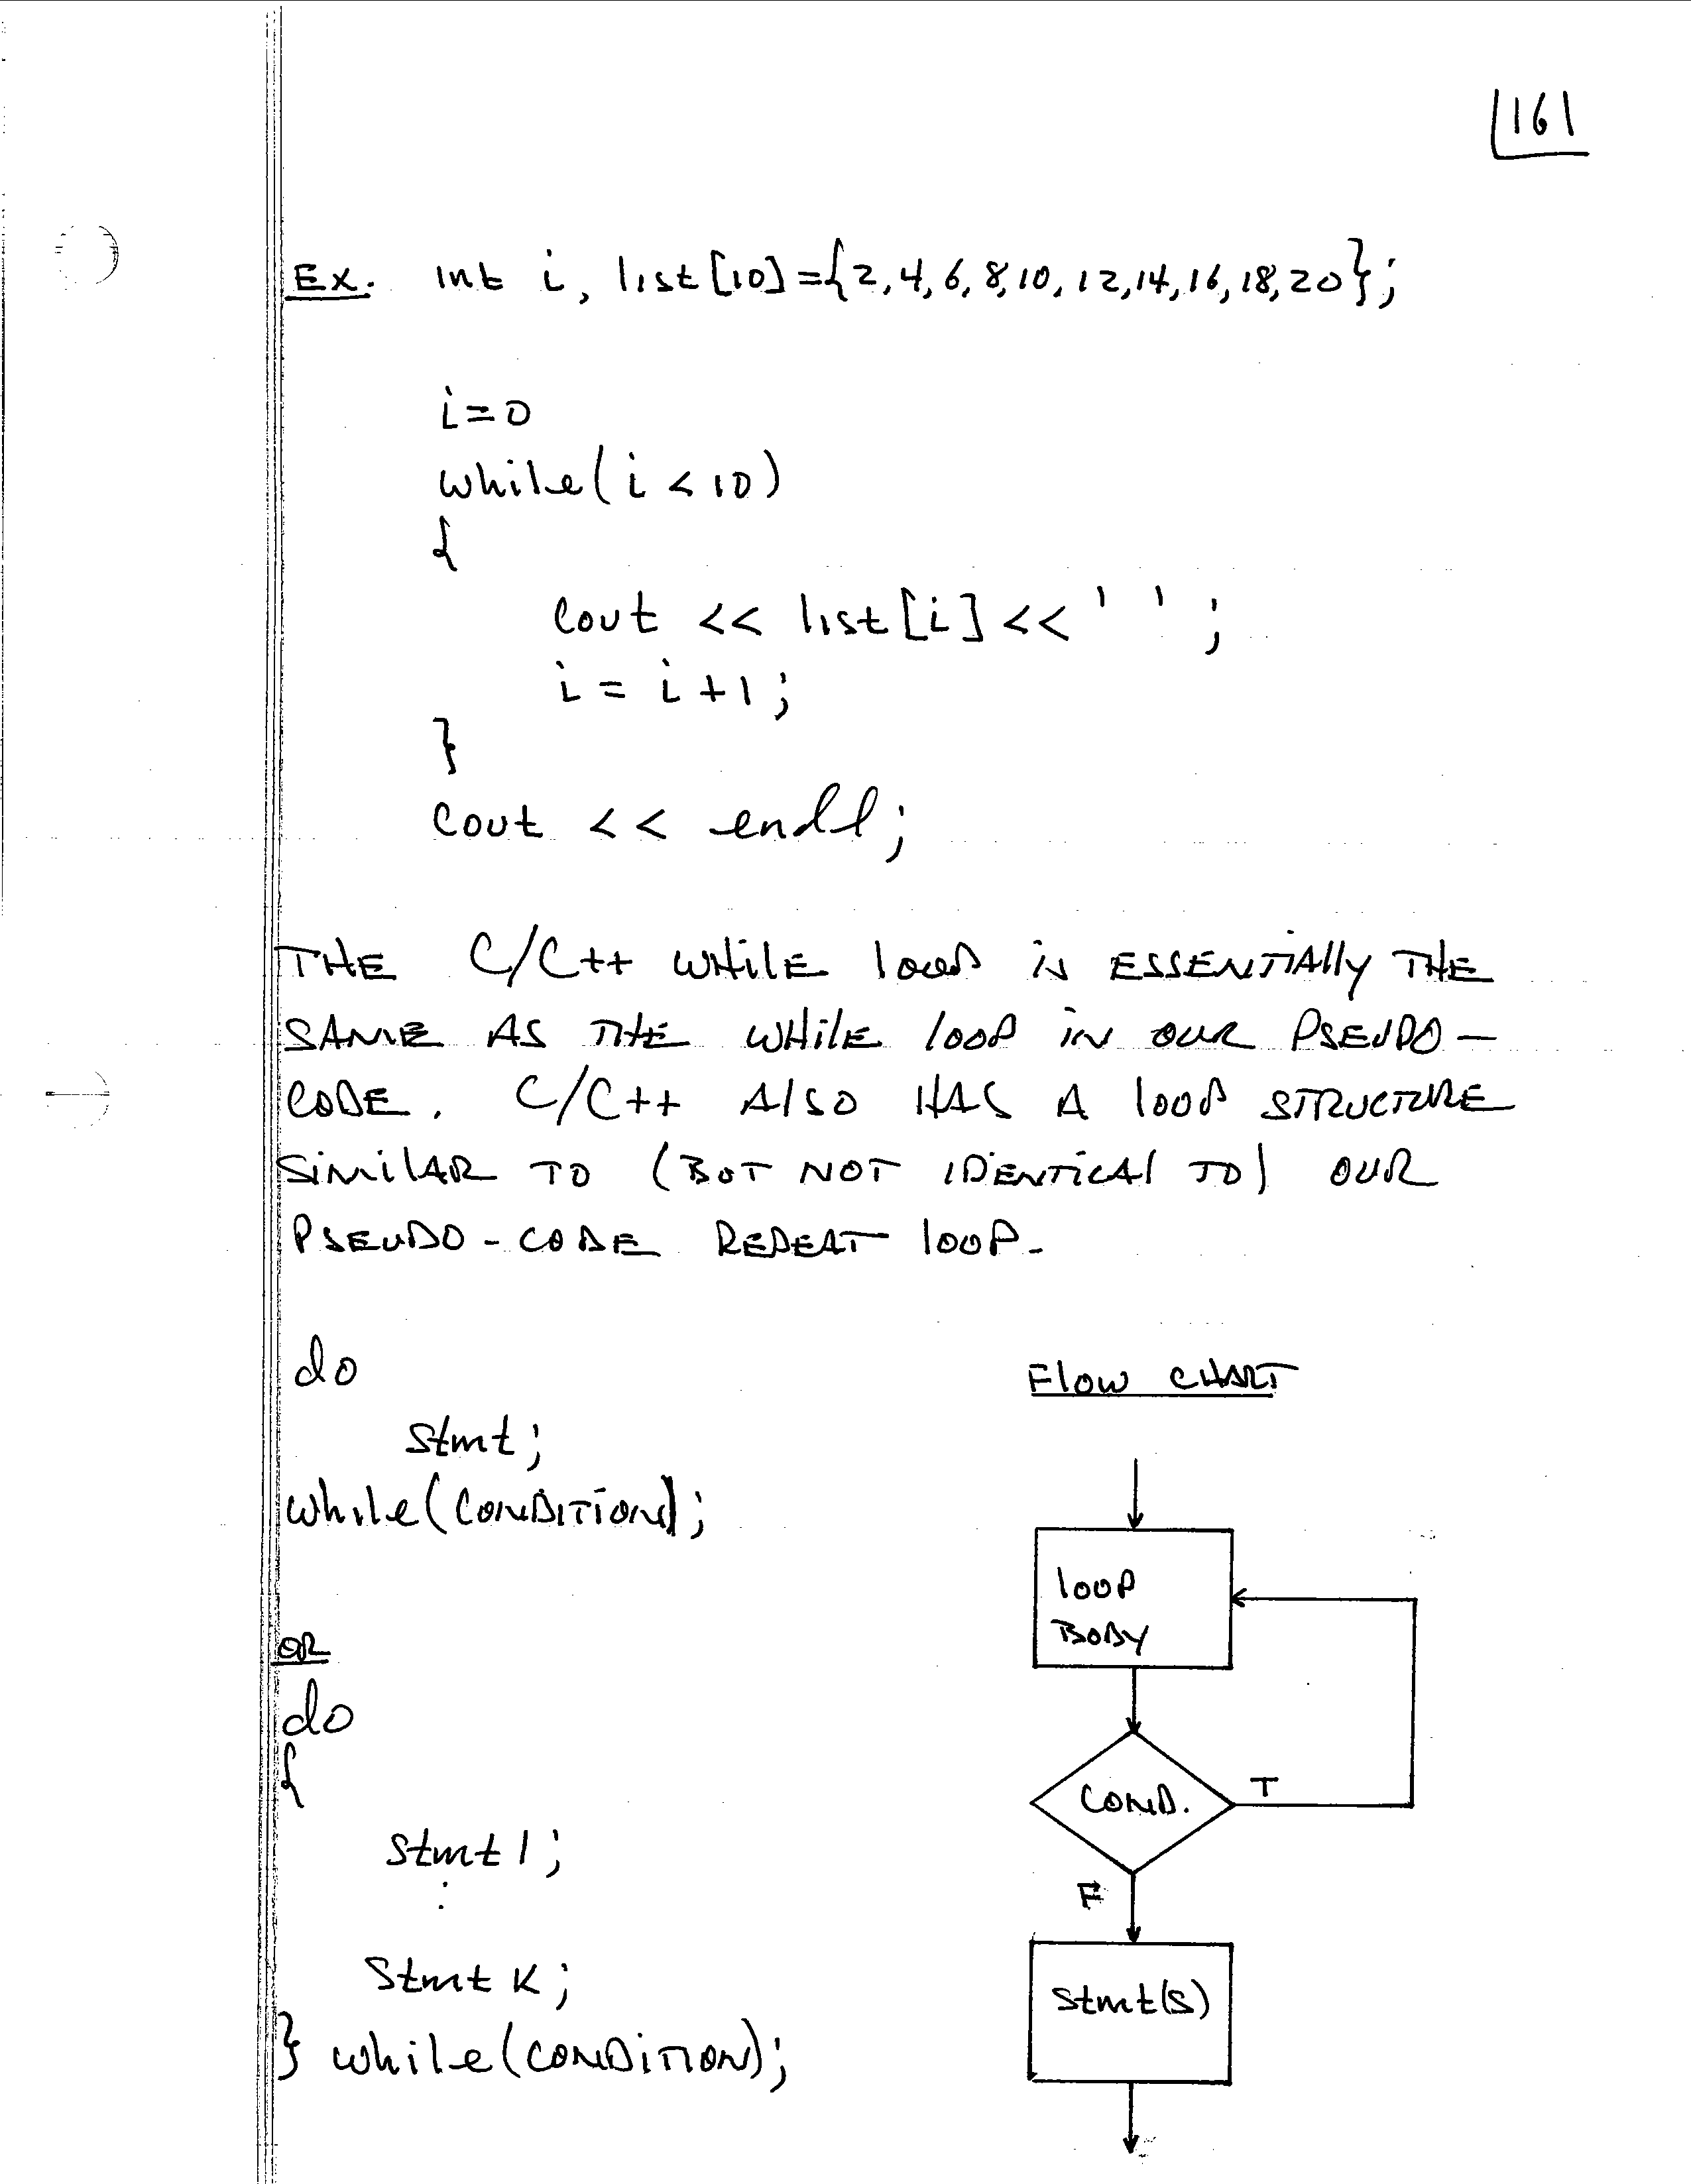 161
Ex. int i, list[10]={2,4,6,8,10,12,14,16,18,20};
i=0
while(i<10)
{
cout << list[i]<<' ';
i = i+1;
}
cout << endl;
THE C/C++ WHILE LOOP IS ESSENTIALLY THE
SAME AS THE WHILE LOOP IN OUR PSEUDO-
CODE. C/C++ ALSO HAS A LOOP STRUCTURE
SIMILAR TO (BUT NOT IDENTICAL TO) OUR
PSEUDO-CODE REPEAT LOOP.
do
stmt;
while(CONDITION);
OR
do
{
stmt 1;
:
stmt K;
} while(CONDITION);
FLOW CHART
LOOP
BODY
COND.
T
F
stmt(s)